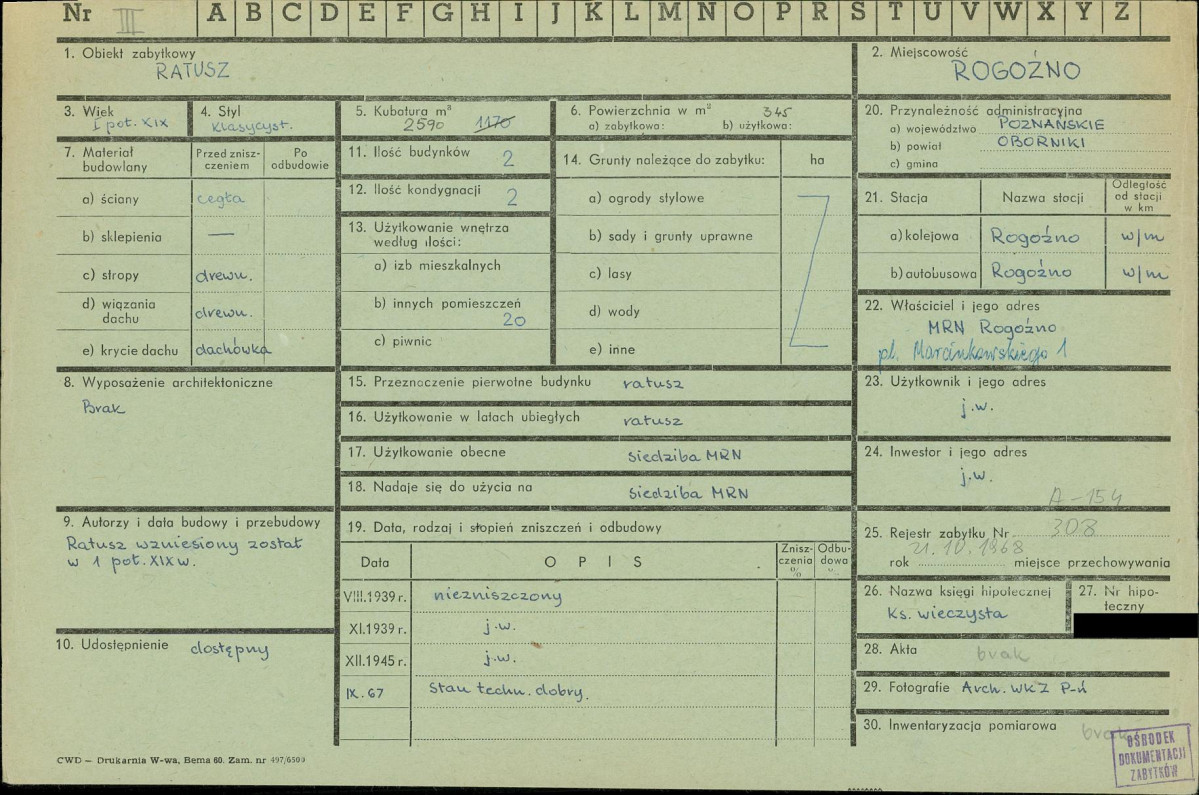 Nr III A B C D E F G H I J K L M N O P R S T U V W X Y Z
1. Obiekt zabytkowy
RATUSZ
2. Miejscowość
ROGOŹNO
3. Wiek
I poł. XIX
4. Styl
Klasycyst.
5. Kubatura m³
2590 1170
6. Powierzchnia w m² 345
a) zabytkowa: b) użytkowa:
20. Przynależność administracyjna
a) województwo POZNAŃSKIE
b) powiat OBORNIKI
c) gmina
7. Materiał budowlany
Przed znisz-
czeniem
Po
odbudowie
a) ściany cegła
b) sklepienia —
c) stropy drewn.
d) wiązania
dachu drewn.
e) krycie dachu dachówka
11. Ilość budynków 2
12. Ilość kondygnacji 2
13. Użytkowanie wnętrza
według ilości:
a) izb mieszkalnych
b) innych pomieszczeń
20
c) piwnic
14. Grunty należące do zabytku: ha
a) ogrody stylowe
b) sady i grunty uprawne
c) lasy
d) wody
e) inne
21. Stacja Nazwa stacji
Odległość
od stacji
w km
a) kolejowa Rogoźno w/m
b) autobusowa Rogoźno w/m
22. Właściciel i jego adres
MRN Rogoźno
pl. Marcinkowskiego 1
8. Wyposażenie architektoniczne
Brak
15. Przeznaczenie pierwotne budynku ratusz
16. Użytkowanie w latach ubiegłych ratusz
17. Użytkowanie obecne siedziba MRN
18. Nadaje się do użycia na siedziba MRN
23. Użytkownik i jego adres
j.w.
24. Inwestor i jego adres
j.w.
A-154
9. Autorzy i data budowy i przebudowy
Ratusz wzniesiony został
w 1 poł. XIX w.
19. Data, rodzaj i stopień zniszczeń i odbudowy
Data O P I S
Znisz-
czenia
%
Odbu-
dowa
%
VIII.1939 r. niezniszczony
XI.1939 r. j.w.
XII.1945 r. j.w.
IX.67 Stan techn. dobry.
25. Rejestr zabytku Nr 308
21.10.1968
rok miejsce przechowywania
26. Nazwa księgi hipotecznej
Ks. wieczysta
27. Nr hipo-
teczny
10. Udostępnienie dostępny
28. Akta brak
29. Fotografie Arch. WKZ P-ń
30. Inwentaryzacja pomiarowa brak
OŚRODEK
DOKUMENTACJI
ZABYTKÓW
CWD – Drukarnia W-wa, Bema 60. Zam. nr 497/6500